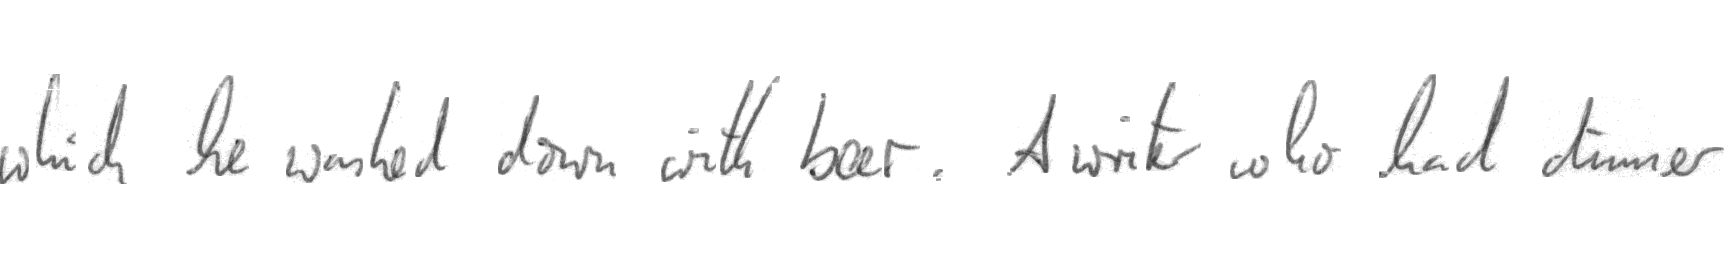 which he washed down with beer. A writer who had dinner